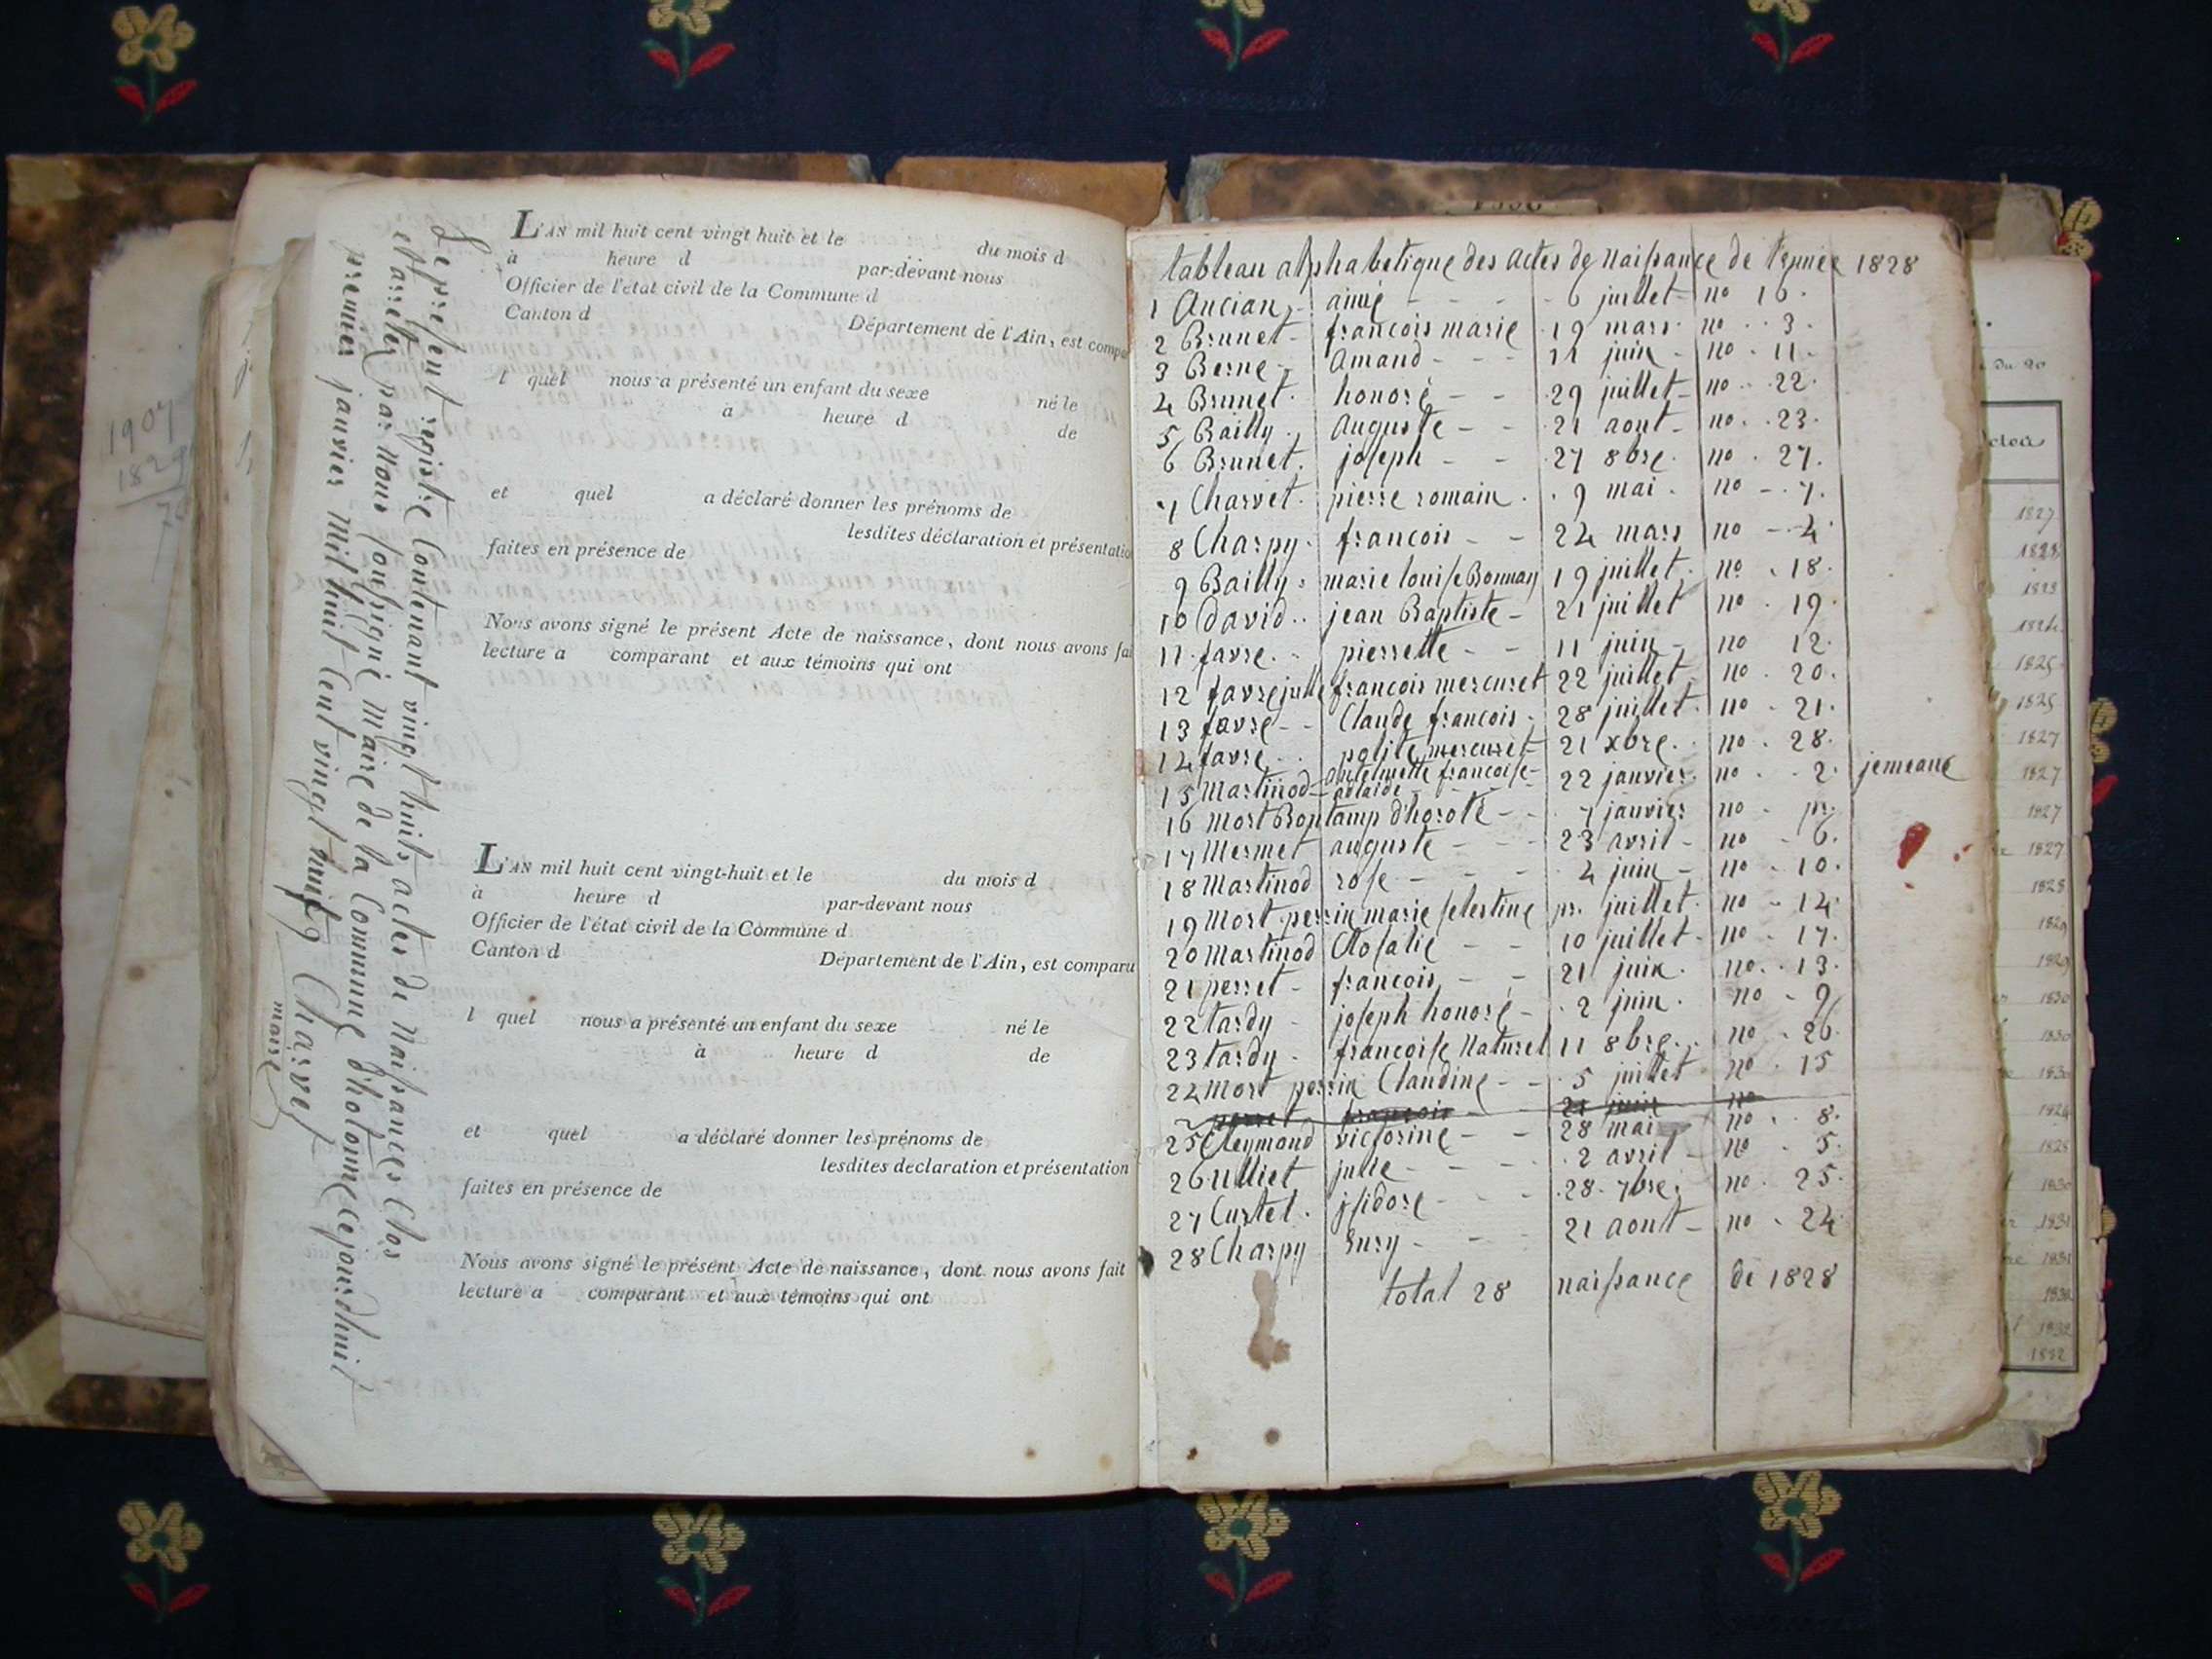 Le present registre Contenant vingt huits actes de Naissances Clos
et arreter par Nous Soussigné maire de la Commune d'hotonne ce jourd'huit
premier janvier Mil huit Cent vingt
Charvet
maire
L'AN mil huit cent vingt huit et le du mois d
à heure d par-devant nous
Officier de l'état civil de la Commune d
Canton d Département de l'Ain, est compa
l quel nous a présenté un enfant du sexe né le
à heure d de
et quel a déclaré donner les prénoms de
lesdites déclaration et présentatio
faites en présence de
Nous avons signé le présent Acte de naissance, dont nous avons fai
lecture a comparant et aux témoins qui ont
L'AN mil huit cent vingt-huit et le du mois d
à heure d par-devant nous
Officier de l'état civil de la Commune d
Canton d Département de l'Ain, est comparu
l quel nous a présenté un enfant du sexe né le
à heure d de
et quel a déclaré donner les prénoms de
lesdites declaration et présentation
faites en présence de
Nous avons signé le présent Acte de naissance, dont nous avons fait
lecture a comparant et aux témoins qui ont
tableau alphabetique des actes de Naissance de l'année 1828
1 Ancian aimé 6 juillet no 16
2 Brunet francois marie 19 mars no 3
3 Berne Amand 11 juin no 11
4 Brunet honoré 29 juillet no 22
5 Bailly Auguste 21 aout no 23
6 Brunet joseph 27 8bre no 27
7 Charvet pierre romain 9 mai no 7
8 Charpy francois 24 mars no 4
9 Bailly marie louise Bonnay 19 juillet no 18
10 david jean Baptiste 21 juillet no 19
11 favre pierrette 11 juin no 12
12 favre julle francois mercuret 22 juillet no 20
13 favre Claude francois 28 juillet no 21
14 favre polite mercuret 21 xbre no 28
15 Martinod antelmette francoise adlaide 22 janvier no 2 jemeane
16 Mort Bontamp d'horoté 7 janvier no pr.
17 Mermet auguste 23 avril no 6
18 Martinod rose 4 juin no 10
19 Mort perrin marie selestine pr. juillet no 14
20 Martinod Rosalie 10 juillet no 17
21 perret francois 21 juin no 13
22 tardy joseph honoré 2 juin no 9
23 tardy francoise Naturel 11 8bre no 26
24 Mort perrin Claudine 5 juillet no 15
perret francois 21 juin no
25 Reymond victorine 28 mai no 8
26 Ulliet julie 2 avril no 5
27 Curtet jsidore 28 7bre no 25
28 Charpy Eury 21 aout no 24
total 28 naissance de 1828
1907
1829
1827
1828
1823
1824
1825
1825
1827
1827
1827
1827
1828
1829
1829
1830
1830
1830
1831
1831
1832